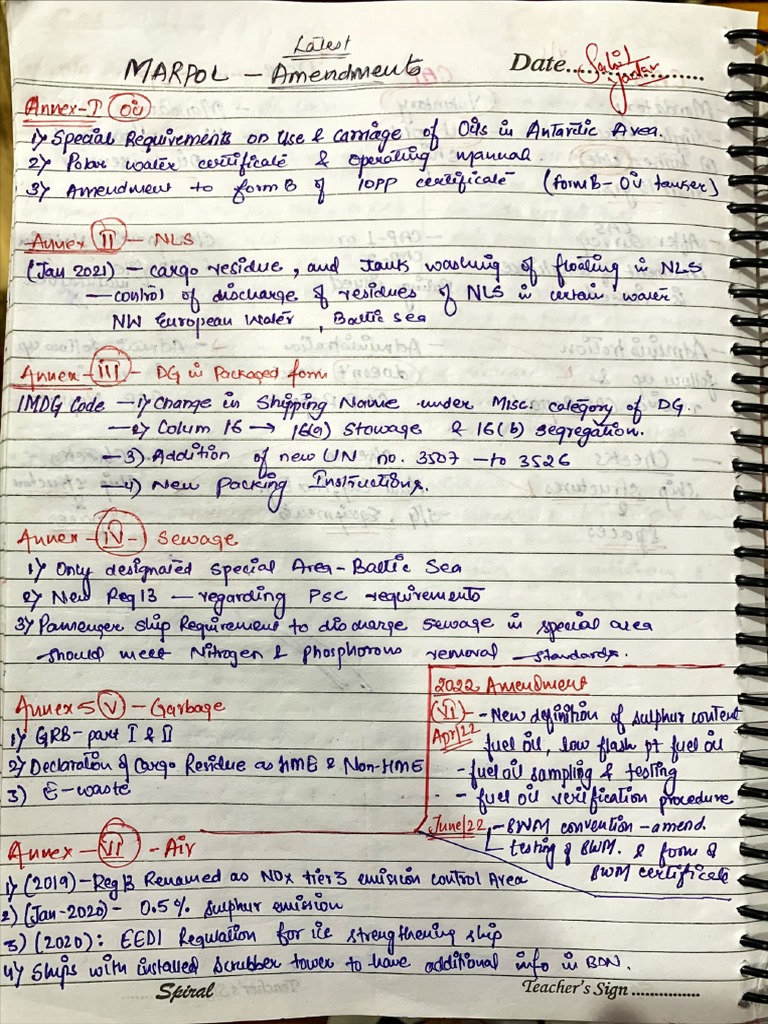 Latest
MARPOL - Amendments
Date..................
Annex-I Oil
1) Special Requirements on Use & Carriage of Oils in Antartic Area.
2) Polar water certificate & operating manual.
3) Amendment to form B of IOPP certificate (form B - Oil tanker)
Annex II - NLS
(Jan 2021) - cargo residue, and Tank washing of floating in NLS
- control of discharge of residues of NLS in certain water
NW European Water, Baltic sea
Annex - III - DG in Packaged form
IMDG Code - 1) Change in Shipping Name under Misc. category of DG.
- 2) Colum 16 → 16(a) Stowage & 16(b) segregation.
- 3) Addition of new UN no. 3507 - to 3526
- 4) New Packing Instructions.
Annex - IV - Sewage
1) Only designated Special Area - Baltic Sea
2) New Reg 13 - regarding PSC requirements
3) Passenger ship Requirement to discharge sewage in special area
should meet Nitrogen & phosphorous removal standards.
Annex 5 V - Garbage
1) GRB - part I & II
2) Declaration of Cargo Residue as HME & Non-HME
3) E-waste
2022 Amendment
VI - New definition of sulphur content
Apr/22 fuel oil, low flash pt fuel oil
- fuel oil sampling & testing
- fuel oil verification procedure
June/22 - BWM convention - amend.
testing of BWM. & form of
BWM certificate
Annex - VI - Air
1) (2019) - Reg 13 Renamed as NOx tier 3 emission control Area
2) (Jan-2020) - 0.5% sulphur emission
3) (2020): EEDI Regulation for ice strengthening ship
4) Ships with installed Scrubber tower to have additional info in BDN.
Spiral
Teacher's Sign ...............